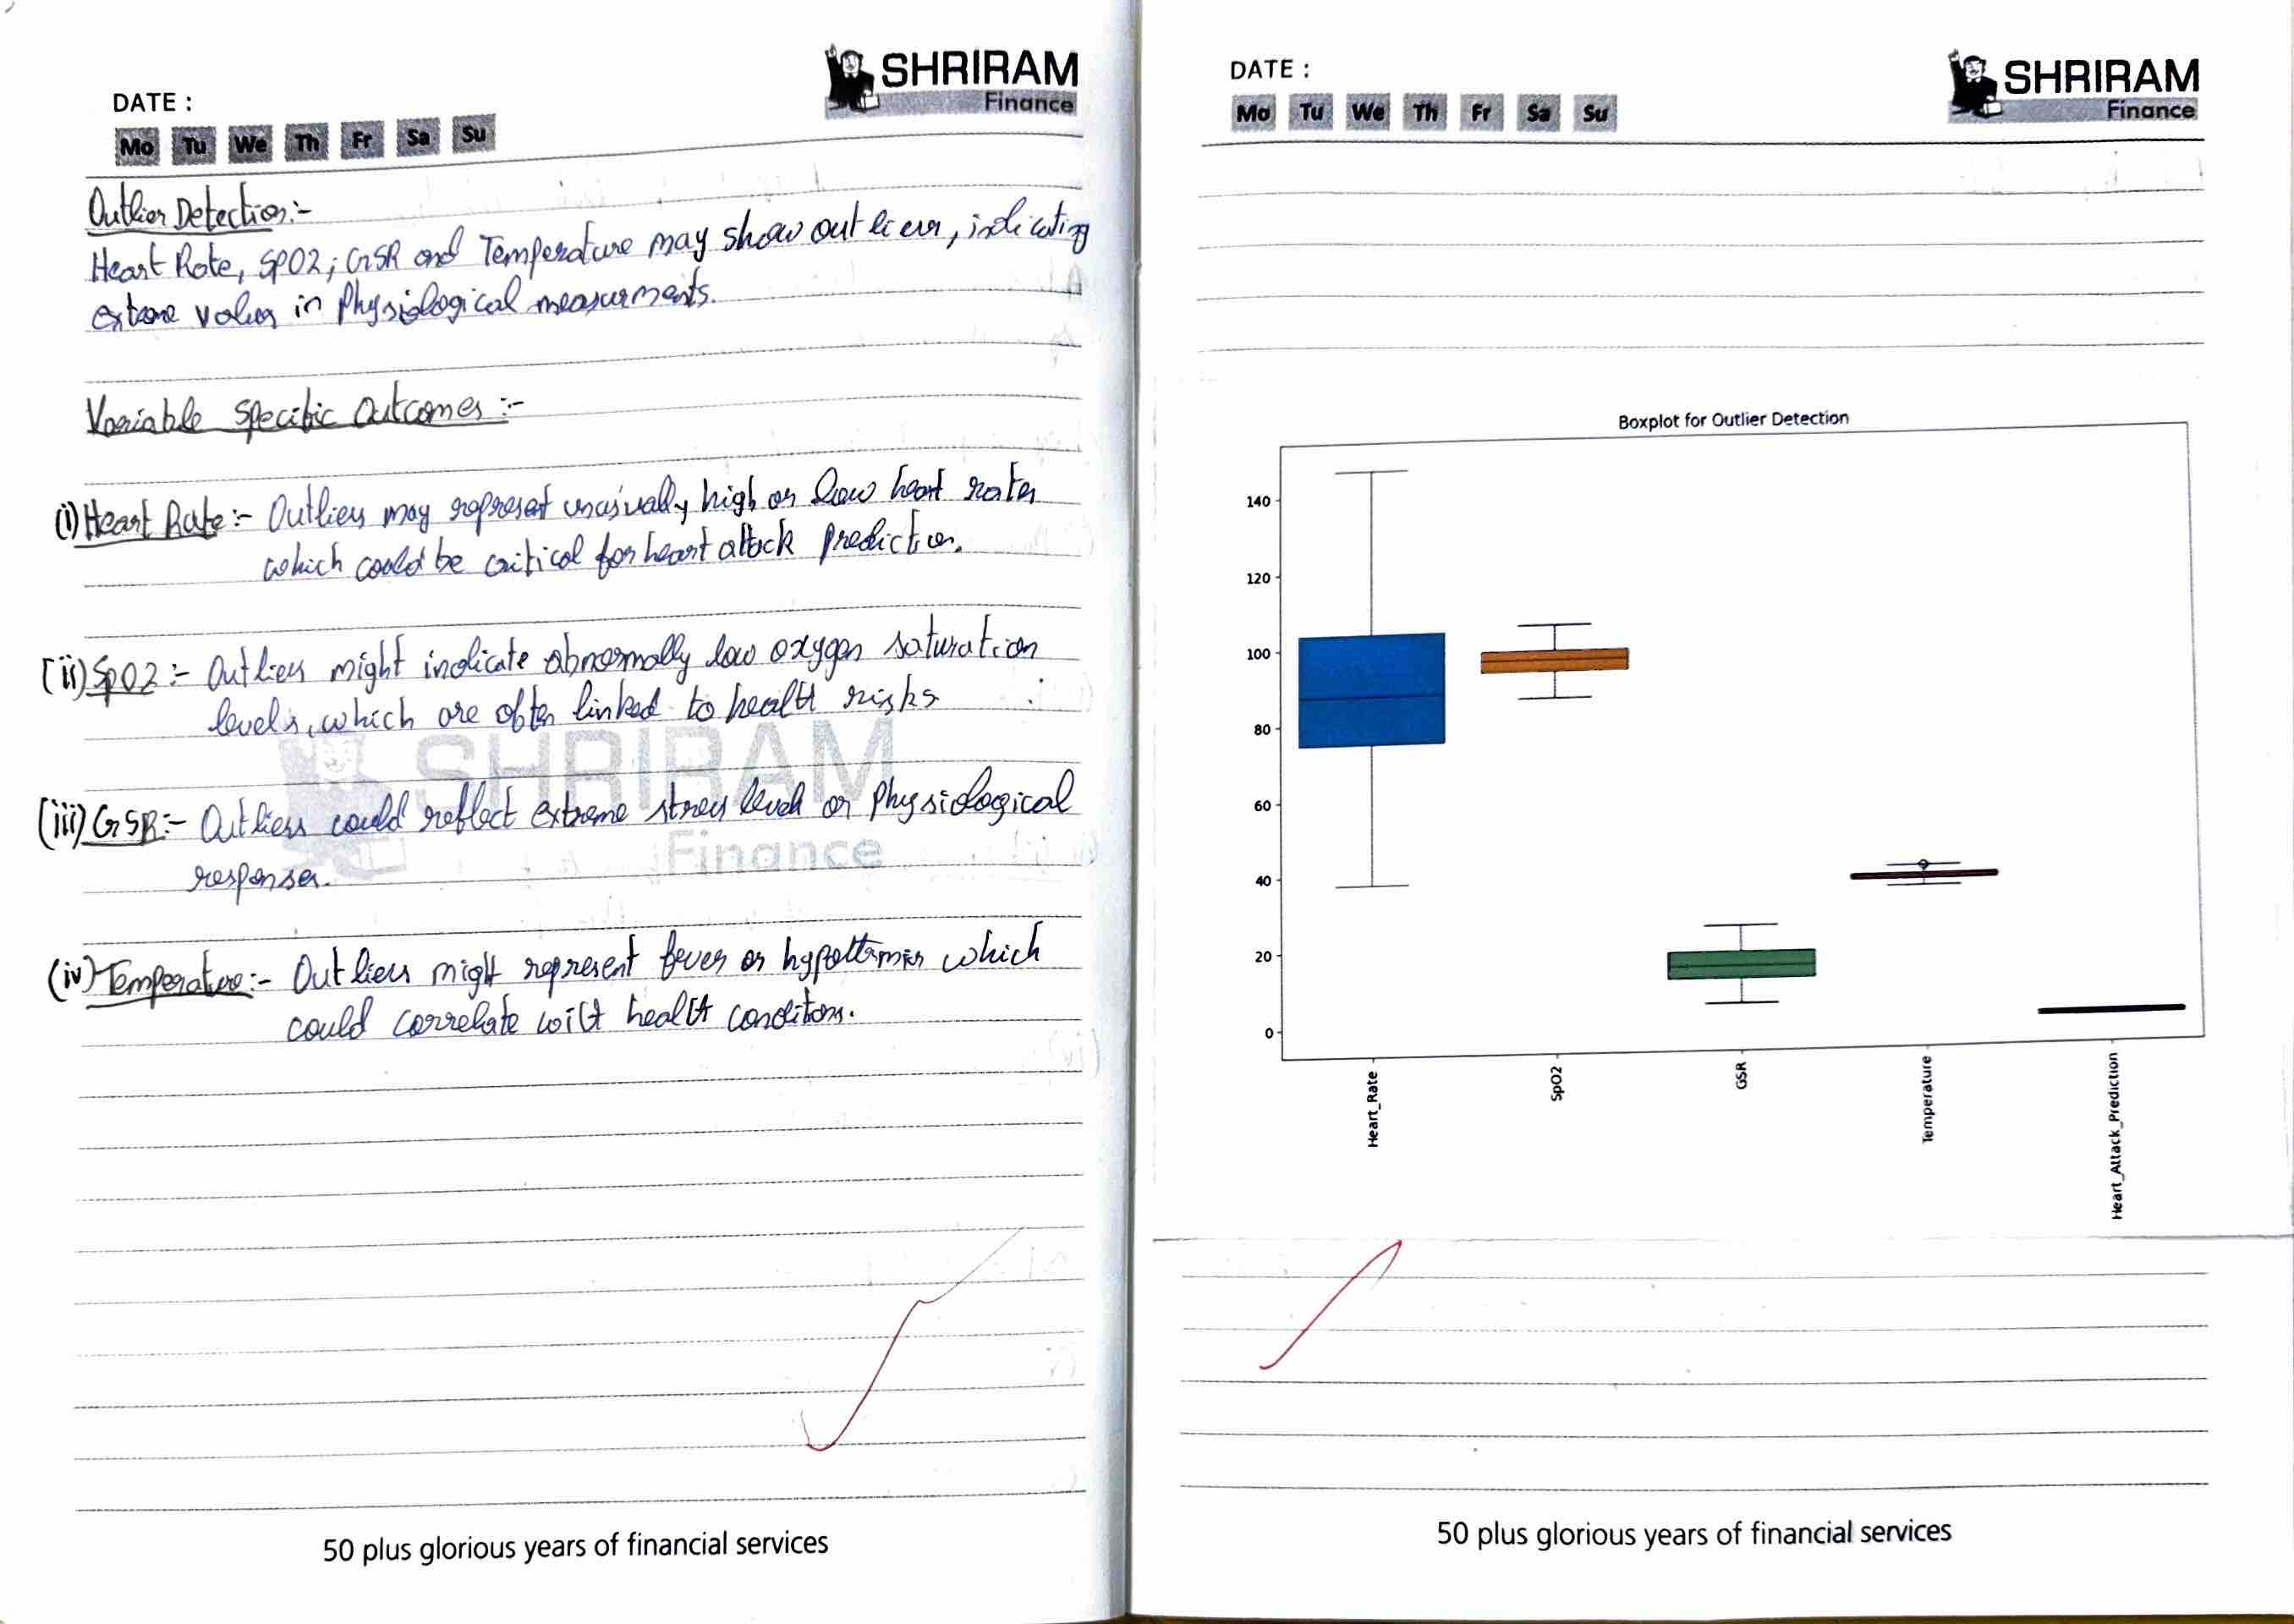 DATE :
SHRIRAM
Finance
Mo Tu We Th Fr Sa Su
Outlier Detection:-
Heart Rate, SPO2; GSR and Temperature may show outliers, indicating
extreme values in Physiological measurments.
Variable Specific Outcomes :-
(i) Heart Rate :- Outliers may represent unusually high or low heart rates
which could be critical for heart attack prediction.
(ii) SpO2 :- Outliers might indicate abnormally low oxygen saturation
levels, which are often linked to health risks
SHRIRAM
(iii) GSR :- Outliers could reflect extreme stress levels or Physiological
Finance
responses.
(iv) Temperature :- Outliers might represent fever or which
could correlate with health conditions.
50 plus glorious years of financial services
DATE :
SHRIRAM
Finance
Mo Tu We Th Fr Sa Su
Boxplot for Outlier Detection
140
120
100
80
60
40
20
0
Heart_Rate
SpO2
GSR
Temperature
Heart_Attack_Prediction
50 plus glorious years of financial services